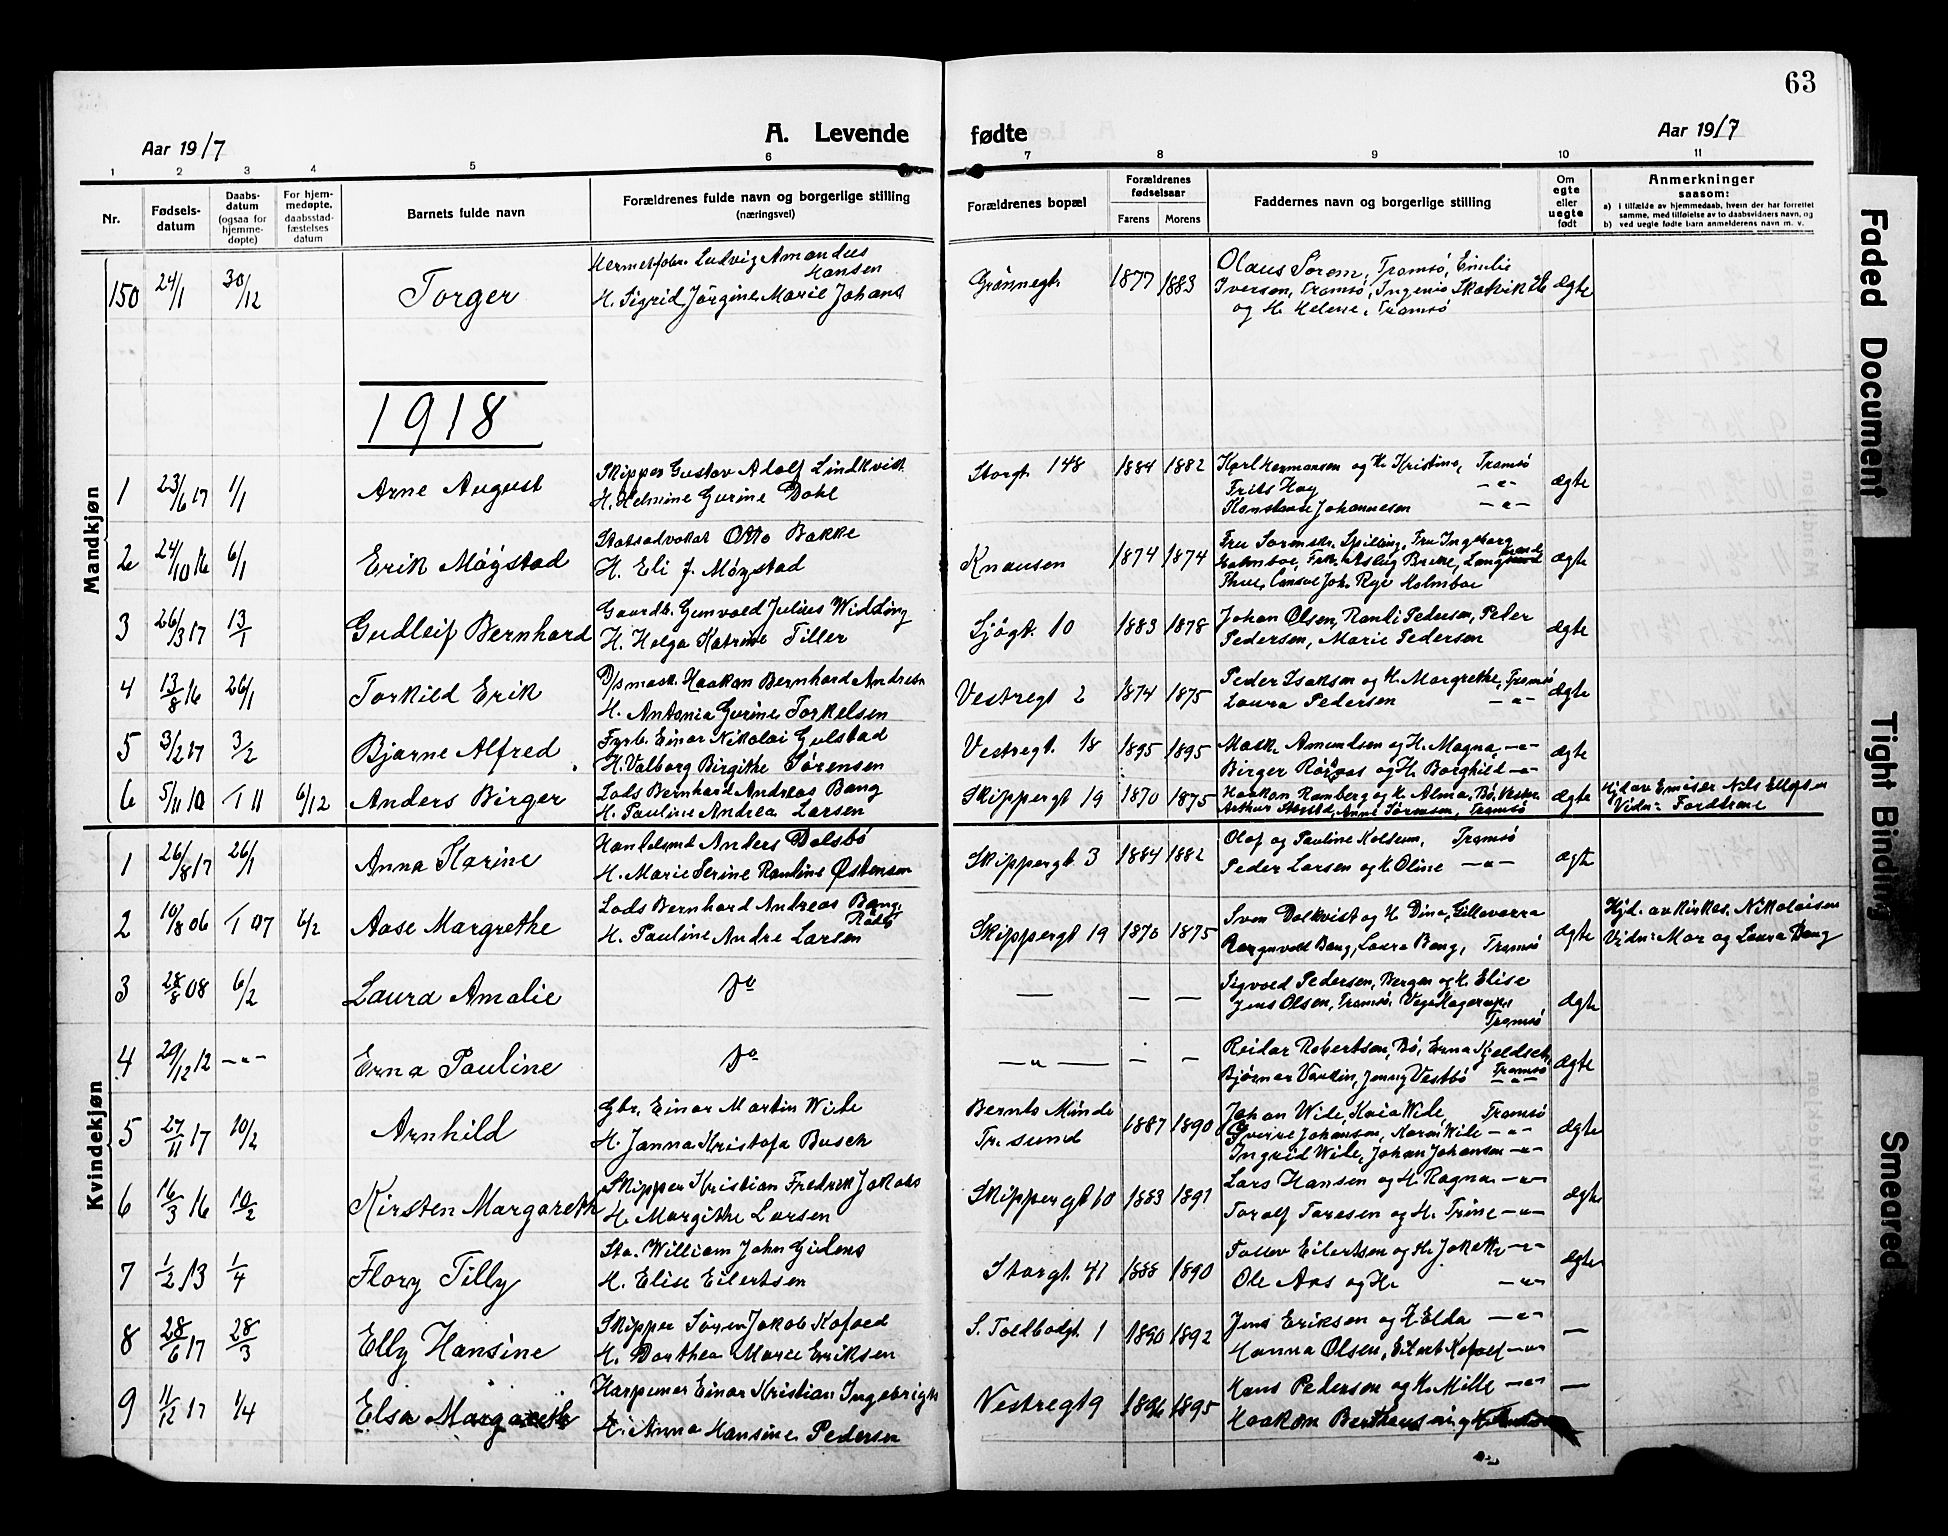 63
Aar 1917
A. Levende fødte
Aar 1917
1 2 3 4 5 6 7 8 9 10 11
Nr.
Fødsels-
datum
Daabs-
datum
(ogsaa for
hjemme-
døpte)
For hjem-
medøpte,
daabsstad-
fæstelses
datum
Barnets fulde navn
Forældrenes fulde navn og borgerlige stilling
(næringsvei)
Forældrenes bopæl
Forældrenes
fødselsaar
Farens Morens
Faddernes navn og borgerlige stilling
Om
egte
eller
uegte
født
Anmerkninger
saasom:
a) i tilfælde av hjemmedaab, hvem der har forrettet
samme, med tilføielse av to daabsvidners navn, og
b) ved uegte fødte barn anmelderens navn m. v.
Mandkjøn
150 24/1 30/12 Torger
Ludvig Amandus
Hansen
H. Sigrid Jörgine Marie Johans
Grønnegt. 1877 1883
Olaus Sörem, Tromsö, Emilie
Iversen, Tromsö, Skatvik
og H. Helene, Tromsö
Ægte
1918
1 23/6 17 1/1 Arne August
Skipper Gustav Adolf Lindkvist
H. Helmine Gurine Dahl
Storgt. 148 1884 1882
Karl Hermansen og H. Kristine, Tromsö
Frits Hay -"-
Konstanse Johannesen -"-
Ægte
2 24/10 16 6/1 Erik Möystad
Statsadvokat Otto Bakke
H. Eli f. Möystad
Knausen 1874 1874
Fru Ingeborg
Holmboe
Thue, Consul Joh. Rye Holmboe
Ægte
3 26/3 17 13/1 Gudleif Bernhard
Gaardb. Gunvald Julius Widding
H. Helga Katrine Tiller
Sjögt. 10 1883 1878
Johan Olsen, Pedersen, Peter
Pedersen, Marie Pedersen
Ægte
4 13/8 16 26/1 Torkild Erik
D/s mask. Haakon Bernhard Andresen
H. Antonia Gurine Torkelsen
Vestregt 2 1874 1875
Peder Isaksen og H. Margrethe, Tromsö
Laura Pedersen -"-
Ægte
5 3/2 17 3/2 Bjarne Alfred
Fyrb. Einar Nikolai Gulstad
H. Valborg Birgithe Sörensen
Vestregt. 18 1895 1895
Mask. Amundsen og H. Magna -"-
Birger og H. Borghild -"-
Ægte
6 5/11 10 T 11 6/12 Anders Birger
Lods Bernhard Andreas Bang
H. Pauline Andrea Larsen
Skippergt 19 1870 1875
Haakon Ramberg og H. Alma, Bö,
Arthur Anne Sörensen, Tromsö
Ægte
Hjd av Nils Ellefsen
Vidn:
Kvindekjøn
1 26/8 17 26/1 Anna Karine
Handelsmd Anders Dalsbö
H. Marie Serine Pauline Østensen
Skippergt. 3 1884 1882
Olaf og Pauline Tromsö
Peder Larsen og H. Oline -"-
Ægte
2 10/8 06 T 07 6/2 Aase Margrethe
Lods Bernhard Andreas Bang,
H. Pauline Andre Larsen
Skippergt 19 1870 1875
Sven Dalkvist og H Dina, Gillavarra
Ragnvald Bang, Laura Bang, Tromsö
Ægte
Hjd. av Nikolaisen
Vidn: Mor og Laura Bang
3 28/8 08 6/2 Laura Amalie
Do
— — —
Sigvald Pedersen, Bergen og H. Elise
Jens Olsen, Tromsö,
Tromsö
Ægte
4 29/12 12 -"- Erna Pauline
Do
—"— — —
Reidar Robertsen, Bö, Erna Kjeldsen,
Bjørnar Jenny Vestbö Tromsö
-"-
Ægte
5 27/11 17 10/2 Arnhild
Gbr. Einar Martin Wile
H. Janna Kristofa Busch
Bernts Minde
Tr. sund
1887 1890
Johan Wile, Kaia Wile Tromsö
Sverre Johansen, Karen Wile -"-
Ingrid Wile, Johan Johansen -"-
Ægte
6 16/3 16 10/2 Kirsten Margareth
Skipper Kristian Fredrik Jakobs
H. Margithe Larsen
Skippergt 10 1883 1891
Lars Hansen og H. Ragna -"-
Toralf Toresen og H. Trine -"-
Ægte
7 1/2 13 1/4 Flory Tilly
Sta. William John
H. Elise Eilertsen
Storgt. 41 1888 1890
Tollev Eilertsen og H. -"-
Ole Aas og H. -"-
Ægte
8 28/6 17 28/3 Elly Hansine
Skipper Sören Jakob Kofoed
H. Dorthea Marie Eriksen
S. Toldbodgt. 1 1890 1892
Jens Eriksen og H Elda -"-
Hanna Olsen, Eilert Kofoed -"-
—
9 11/12 17 1/4 Elsa Margareth
Harpuner Einar Kristian Ingebrigts
H. Anna Hansine Pedersen
Vestregt 9 1896 1895
Hans Pedersen og H. Mille -"-
Haakon Bertheussen og H.
—
Faded Document
Tight Binding
Smeared